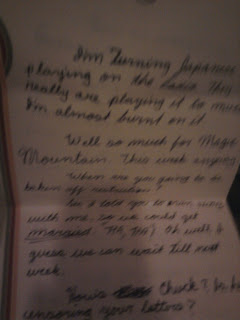 I'm Turning Japanese
playing on the radio. They
really are playing it to much
I'm almost burnt on it.
Well so much for Magic
Mountain. This week anyway
When are you going to be
taken off restriction?
you could get
married. Oh well, I
guess we can wait till next
week.
Chuck?
censoring your letters?